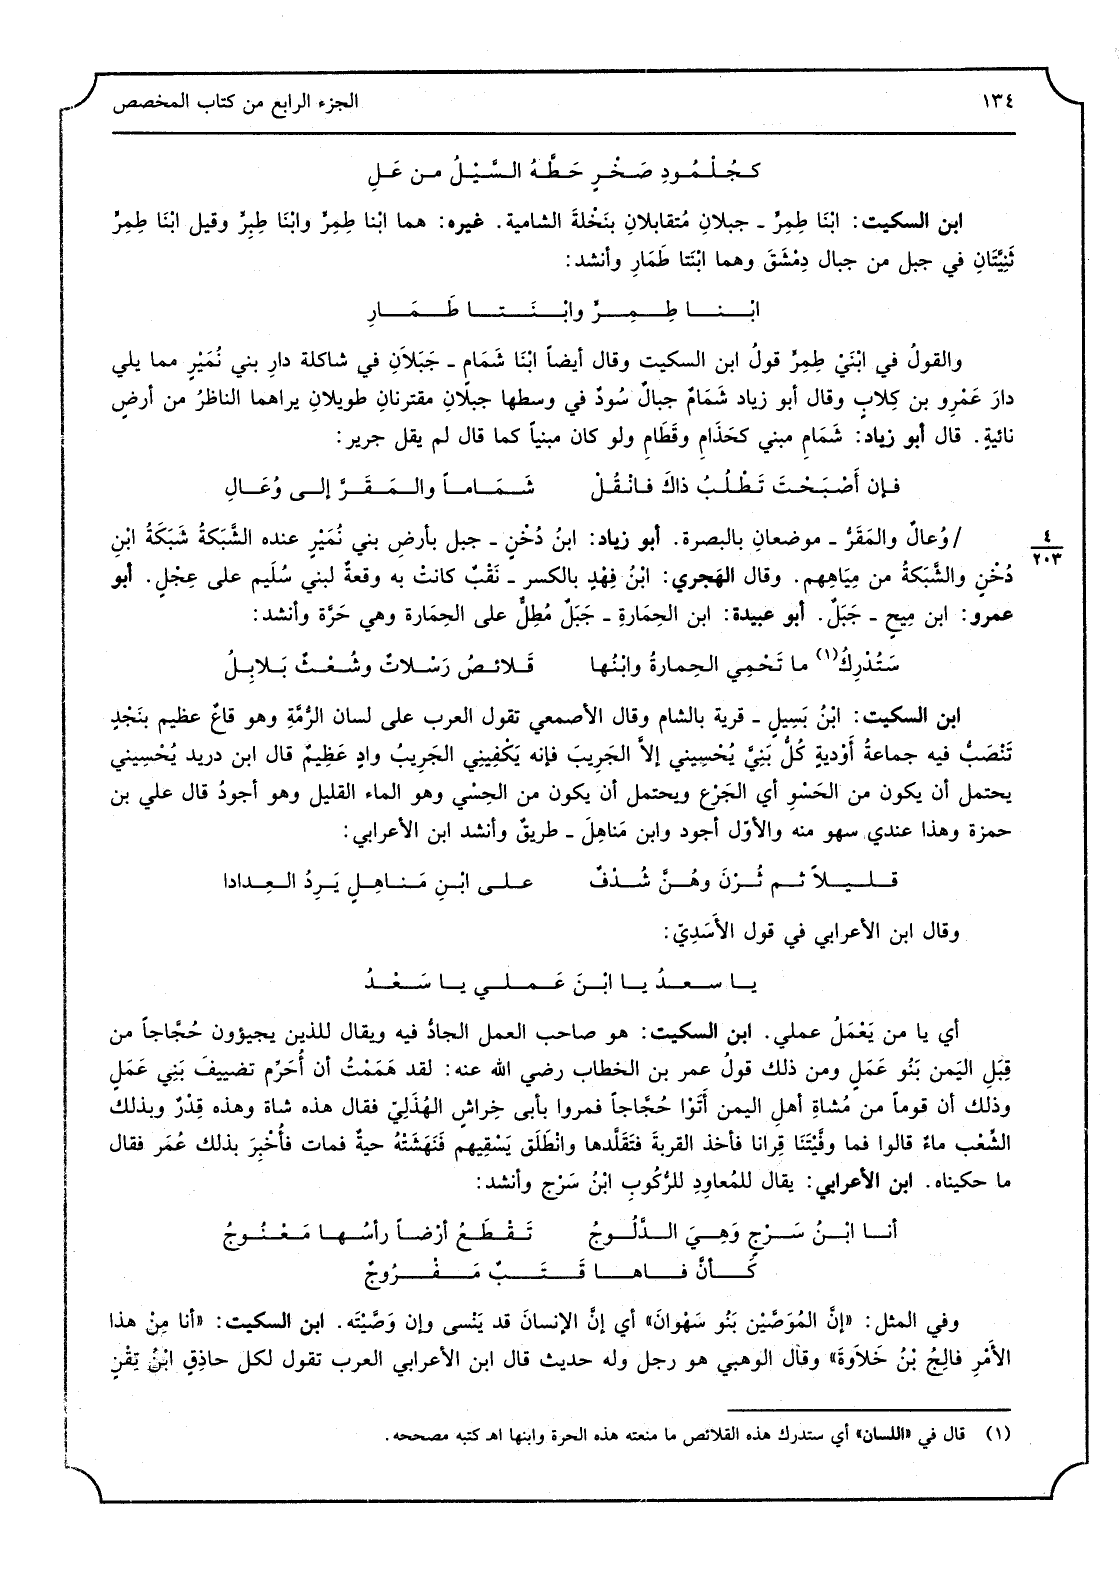 ١٣٤ الجزء الرابع من كتاب المخصص
كَجُلْمُودِ صَخْرٍ حَطَّهُ السَّيْلُ من عَلِ
ابن السكيت: ابْنَا طِمِرٍّ ـ جبلانِ مُتقابلانِ بنَخْلةَ الشامية. غيره: هما ابْنا طِمِرٍّ وابْنَا طِبِرٍّ وقيل ابْنَا طِمِرٍّ
ثَنِيَّتَانِ في جبل من جبال دِمْشَقَ وهما ابْنَتا طَمَارِ وأنشد:
ابْنا طِمِرٍّ وابْنَتا طَمَارِ
والقولُ في ابْنَيْ طِمِرٍّ قولُ ابن السكيت وقال أيضاً ابْنَا شَمَامِ ـ جَبَلاَنِ في شاكلة دارِ بني نُمَيْرٍ مما يلي
دارَ عَمْرِو بن كِلابٍ وقال أبو زياد شَمَامٌ جبالٌ سُودٌ في وسطها جبلانِ مقترنانِ طويلانِ يراهما الناظرُ من أرضٍ
نائيةٍ. قال أبو زياد: شَمَامِ مبني كحَذَامِ وقَطَامِ ولو كان مبنياً كما قال لم يقل جرير:
فإن أَصْبَحْتَ تَطْلُبُ ذاكَ فانْقُلْ شَمَاماً والمَقَرَّ إلى وُعَالِ
/ وُعالٌ والمَقَرُّ ـ موضعانِ بالبصرة. أبو زياد: ابنُ دُخْنٍ ـ جبل بأرضِ بني نُمَيْرٍ عنده الشَّبَكةُ شَبَكَةُ ابْنِ
٤
٢٠٣
دُخْنٍ والشَّبَكةُ من مِيَاهِهم. وقال الهَجَري: ابْنُ فِهْدٍ بالكسر ـ نَقْبٌ كانتْ به وقعةٌ لبني سُلَيم على عِجْلٍ. أبو
عمرو: ابن مِيحٍ ـ جَبَلٌ. أبو عبيدة: ابن الحِمَارةِ ـ جَبَلٌ مُطِلٌّ على الحِمَارة وهي حَرَّة وأنشد:
سَتُدْرِكُ(١) ما تَحْمِي الحِمارةُ وابْنُها قَلائصُ رَسْلاتٌ وشُعْثٌ بَلابِلُ
ابن السكيت: ابْنُ بَسِيلٍ ـ قرية بالشام وقال الأصمعي تقول العرب على لسان الرُّمَّةِ وهو قاعٌ عظيم بنَجْدٍ
تَنْصَبُّ فيه جماعةُ أَوْديةٍ كُلُّ بَنِيَّ يُحْسِيني إلاَّ الجَريبَ فإنه يَكْفِيني الجَرِيبُ وادٍ عَظِيمٌ قال ابن دريد يُحْسِيني
يحتمل أن يكون من الحَسْوِ أي الجَرْع ويحتمل أن يكون من الحِسْي وهو الماء القليل وهو أجودُ قال علي بن
حمزة وهذا عندي سهو منه والأوّل أجود وابن مَناهِلَ ـ طريقٌ وأنشد ابن الأعرابي:
قليلاً ثم ثُرْنَ وهُنَّ شُدْفٌ على ابْنِ مَناهِلٍ يَرِدُ العِدادا
وقال ابن الأعرابي في قول الأَسَدِيّ:
يا سعدُ يا ابْنَ عَملي يا سَعْدُ
أي يا من يَعْمَلُ عملي. ابن السكيت: هو صاحب العمل الجادُّ فيه ويقال للذين يجيؤون حُجَّاجاً من
قِبَلِ اليَمن بَنُو عَمَلٍ ومن ذلك قولُ عمر بن الخطاب رضي الله عنه: لقد هَمَمْتُ أن أُحَرِّم تضييفَ بَنِي عَمَلٍ
وذلك أن قوماً من مُشاةِ أهلِ اليمن أَتَوْا حُجَّاجاً فمروا بأبى خِراشٍ الهُذَلِيّ فقال هذه شاة وهذه قِدْرٌ وبذلك
الشِّعْب ماءٌ قالوا فما وفَّيْتَنَا قِرانا فأخذ القربةَ فتَقَلَّدها وانْطَلَق يَسْقِيهم فَنَهَشَتْهُ حيةٌ فمات فأُخْبِرَ بذلك عُمَر فقال
ما حكيناه. ابن الأعرابي: يقال للمُعاوِدِ للرُّكُوبِ ابْنُ سَرْج وأنشد:
أنا ابْنُ سَرْجٍ وَهِيَ الدَّلُوجُ تَقْطَعُ أرْضاً رأسُها مَعْنُوجُ
كَأنَّ فاها قَتَبٌ مَفْروجُ
وفي المثل: «إنَّ المُوَصَّيْنِ بَنُو سَهْوانَ» أي إنَّ الإنسانَ قد يَنْسى وإن وَصَّيْتَه. ابن السكيت: «أنا مِنْ هذا
الأَمْرِ فالِجُ بْنُ خَلاَوةَ» وقال الوهبي هو رجل وله حديث قال ابن الأعرابي العرب تقول لكل حاذِقٍ ابْنُ تِقْنٍ
(١) قال في «اللسان» أي ستدرك هذه القلائص ما منعته هذه الحرة وابنها اهـ كتبه مصححه.